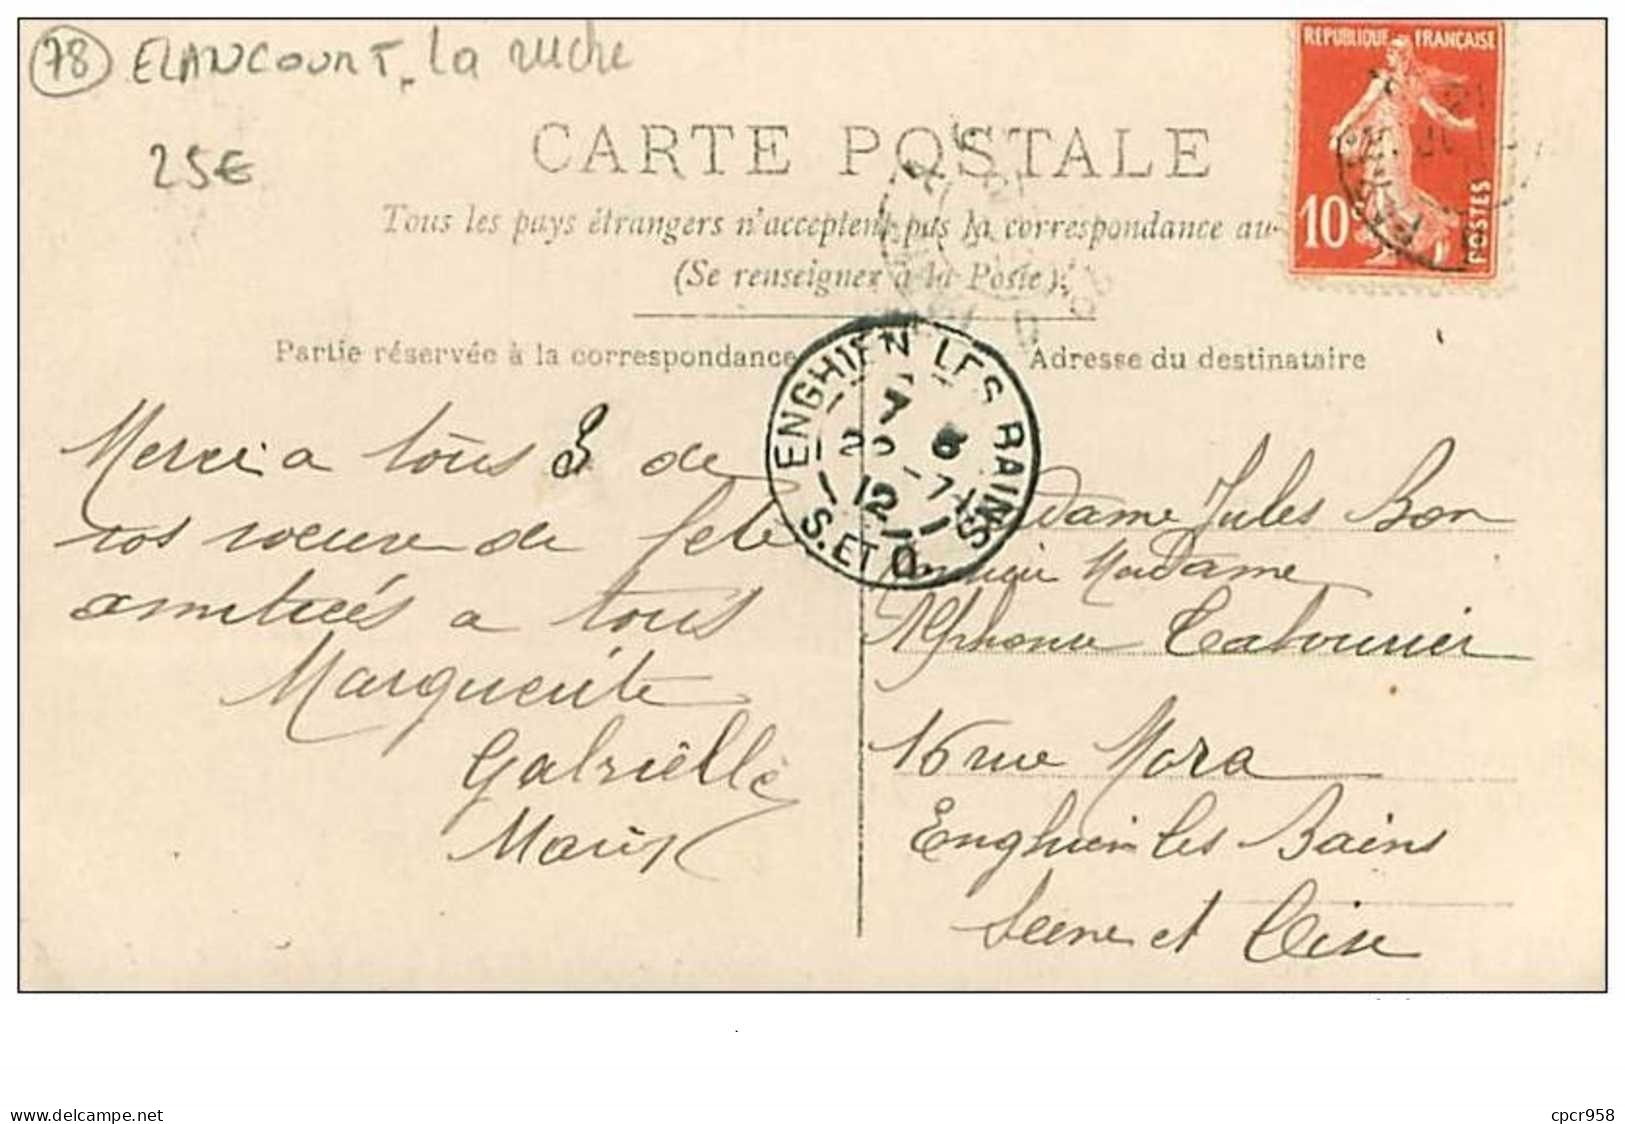 78 ELANCOURT. La ruche
25€
REPUBLIQUE FRANÇAISE
10c
POSTES
CARTE POSTALE
Tous les pays étrangers n'acceptent pas la correspondance au
(Se renseigner à la Poste).
Partie réservée à la correspondance
Adresse du destinataire
ENGHIEN LES BAINS
7 8
20 -7
12
S. ET O.
Merci a tous 3 de
vos voeux de fete
amitiés a tous
Marguerite
Gabrielle
Madame Jules Bon
Madame
Alphonse
16 rue Mora
Enghien les Bains
Seine et Oise
www.delcampe.net
cpcr958